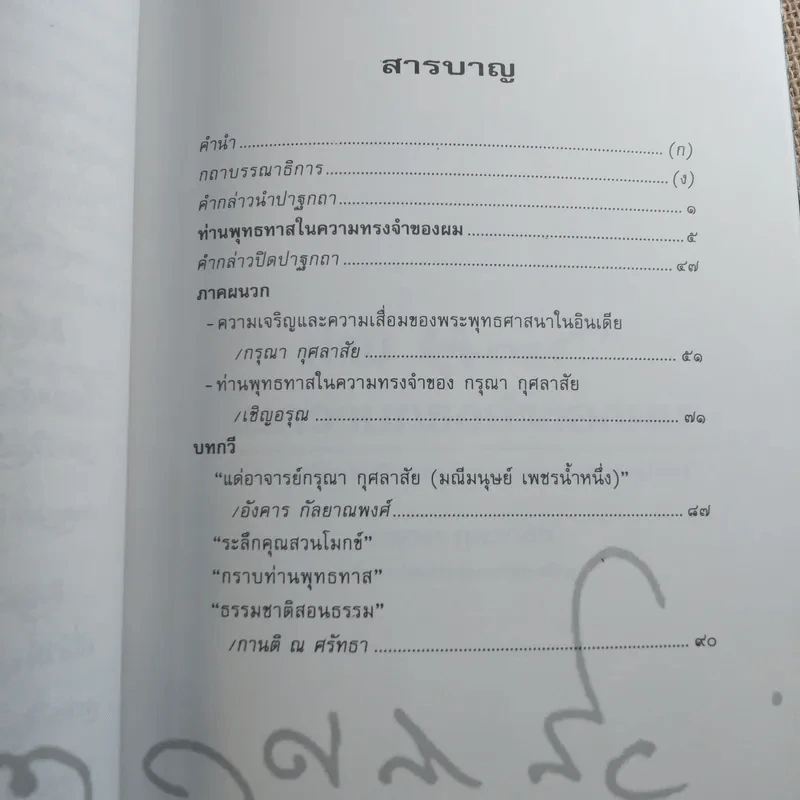 สารบาญ
คำนำ ........................................................ (ก)
กถาบรรณาธิการ ........................................................ (ง)
คำกล่าวนำปาฐกถา ........................................................ ๑
ท่านพุทธทาสในความทรงจำของผม ........................................ ๕
คำกล่าวปิดปาฐกถา ........................................................ ๔๗
ภาคผนวก
-ความเจริญและความเสื่อมของพระพุทธศาสนาในอินเดีย
/กรุณา กุศลาสัย ........................................................ ๕๑
-ท่านพุทธทาสในความทรงจำของ กรุณา กุศลาสัย
/เชิญอรุณ ........................................................ ๗๑
บทกวี
“แด่อาจารย์กรุณา กุศลาสัย (มณีมนุษย์ เพชรน้ำหนึ่ง)”
/อังคาร กัลยาณพงศ์ ........................................................ ๘๗
“ระลึกคุณสวนโมกข์”
“กราบท่านพุทธทาส”
“ธรรมชาติสอนธรรม”
/กานติ ณ ศรัทธา ........................................................ ๙๐